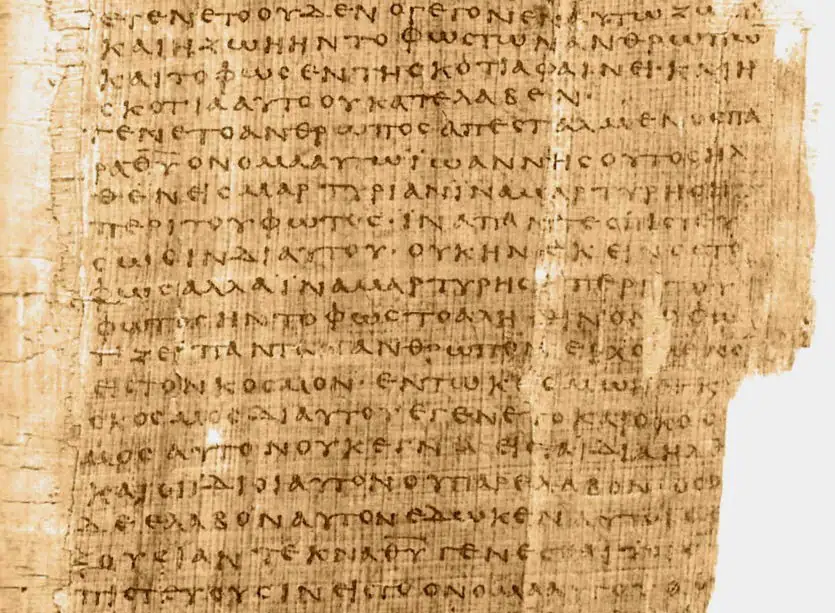 ΕΓΕΝΕΤΟΟΥΔΕΝΟΓΕΓΟΝΕΝΕΝΑΥΤΩΖΩ
ΚΑΙΗΖΩΗΗΝΤΟΦΩϹΤΩΝΑΝΘΡΩΠΩ
ΚΑΙΤΟΦΩϹΕΝΤΗϹΚΟΤΙΑΦΑΙΝΕΙ·ΚΑΙΗ
ϹΚΟΤΙΑΑΥΤΟΟΥΚΑΤΕΛΑΒΕΝ·
ΓΕΝΕΤΟΑΝΘΡΩΠΟϹΑΠΕϹΤΑΛΜΕΝΟϹΠΑ
ΡΑΘ̅Υ̅ΟΝΟΜΑΑΥΤΩΪΩΑΝΝΗϹΟΥΤΟϹΗΛ
ΘΕΝΕΙϹΜΑΡΤΥΡΙΑΝΪΝΑΜΑΡΤΥΡΗϹΗ
ΠΕΡΙΤΟΥΦΩΤΟϹ·ΙΝΑΠΑΝΤΕϹΠΙϹΤΕΥ
ϹΩϹΙΝΔΙΑΥΤΟΥ·ΟΥΚΗΝΕΚΕΙΝΟϹΤΟ
ΦΩϹΑΛΛΑΙΝΑΜΑΡΤΥΡΗϹΗΠΕΡΙΤΟΥ
ΦΩΤΟϹΗΝΤΟΦΩϹΤΟΑΛΗΘΙΝΟΝΟΦΩ
ΤΙΖΕΙΠΑΝΤΑΑΝΘΡΩΠΟΝΕΡΧΟΜΕΝΟ
ΕΙϹΤΟΝΚΟϹΜΟΝ·ΕΝΤΩΚΟϹΜΩΗΝΚ
ΟΚΟϹΜΟϹΔΙΑΥΤΟΥΕΓΕΝΕΤΟΚΑΙΟΚΟϹ
ΜΟϹΑΥΤΟΝΟΥΚΕΓΝΩΕΙϹΤΑΙΔΙΑΗΛ
ΚΑΙΟΙΙΔΙΟΙΑΥΤΟΝΟΥΠΑΡΕΛΑΒΟΝΟϹΟ
ΔΕΕΛΑΒΟΝΑΥΤΟΝΕΔΩΚΕΝΑΥΤΟΙϹΕ
ΞΟΥϹΙΑΝΤΕΚΝΑΘ̅Υ̅ΓΕΝΕϹΘΑΙΤΟΙϹ
ΠΙϹΤΕΥΟΥϹΙΝΕΙϹΤΟΟΝΟΜΑΑΥΤΟΥ